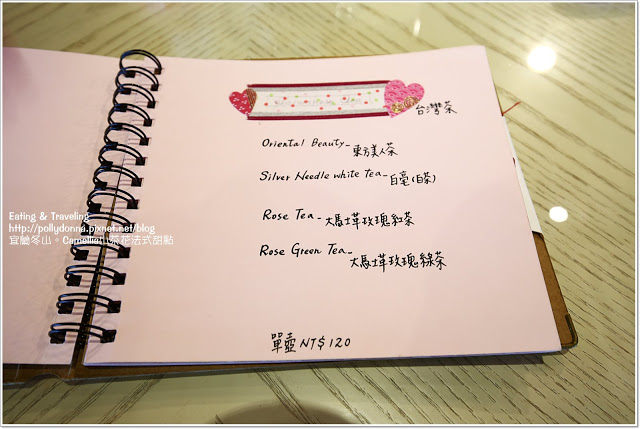 台灣茶
Oriental Beauty-東方美人茶
Silver Needle white Tea-白毫(白茶)
Rose Tea-大馬士革玫瑰紅茶
Rose Green Tea-大馬士革玫瑰綠茶
單壺NT$120
Eating & Traveling
http://pollydonna.pixnet.net/blog
宜蘭冬山。Camellia山茶花法式甜點